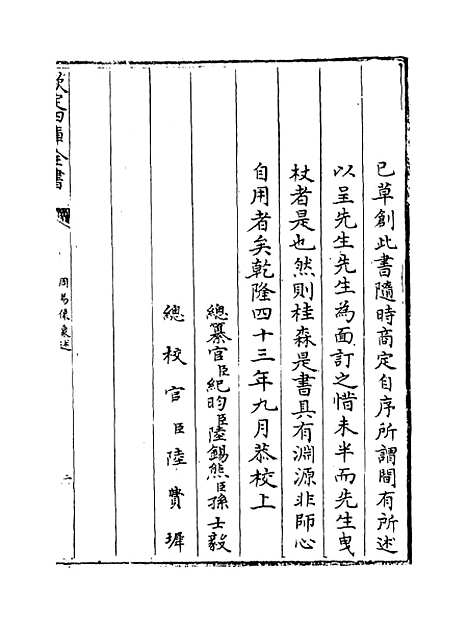 已草創此書隨時商定自序所謂間有所述
以呈先生先生為面訂之惜未半而先生曳
杖者是也然則桂森是書具有淵源非師心
自用者矣乾隆四十三年九月恭校上
總纂官臣紀昀臣陸錫熊臣孫士毅
總校官臣陸費墀
欽定四庫全書
周易像象述
二